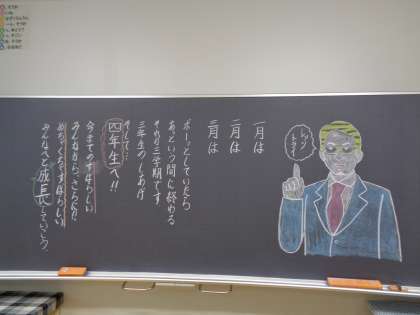 レッツ
トライ!
一月は
二月は
三月は
ボーっとしていたら
あっという間に終わる
それが三学期です
三年生のしあげ
そして…
四年生へ!!
今までのすばらしい
みんなから、さらにた
めちゃくちゃすばらしい
みんなへと成長していこう